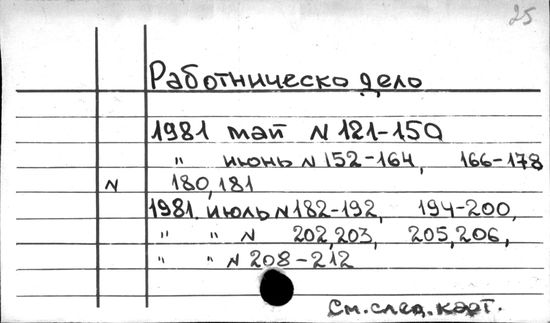 25
Работническо дело
1981 май N 121-150
" июнь N 152-164, 166-178
N 180,181
1981 июль N 182-192, 194-200,
" " N 202,203, 205,206,
" " N 208-212
См.след.карт.